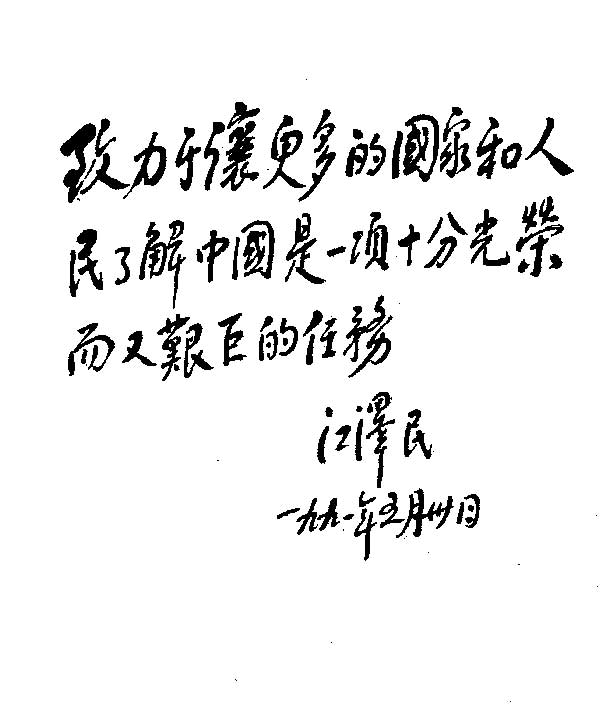 致力于讓更多的國家和人
民了解中國是一項十分光榮
而又艱巨的任務
江澤民
一九九一年五月卅日